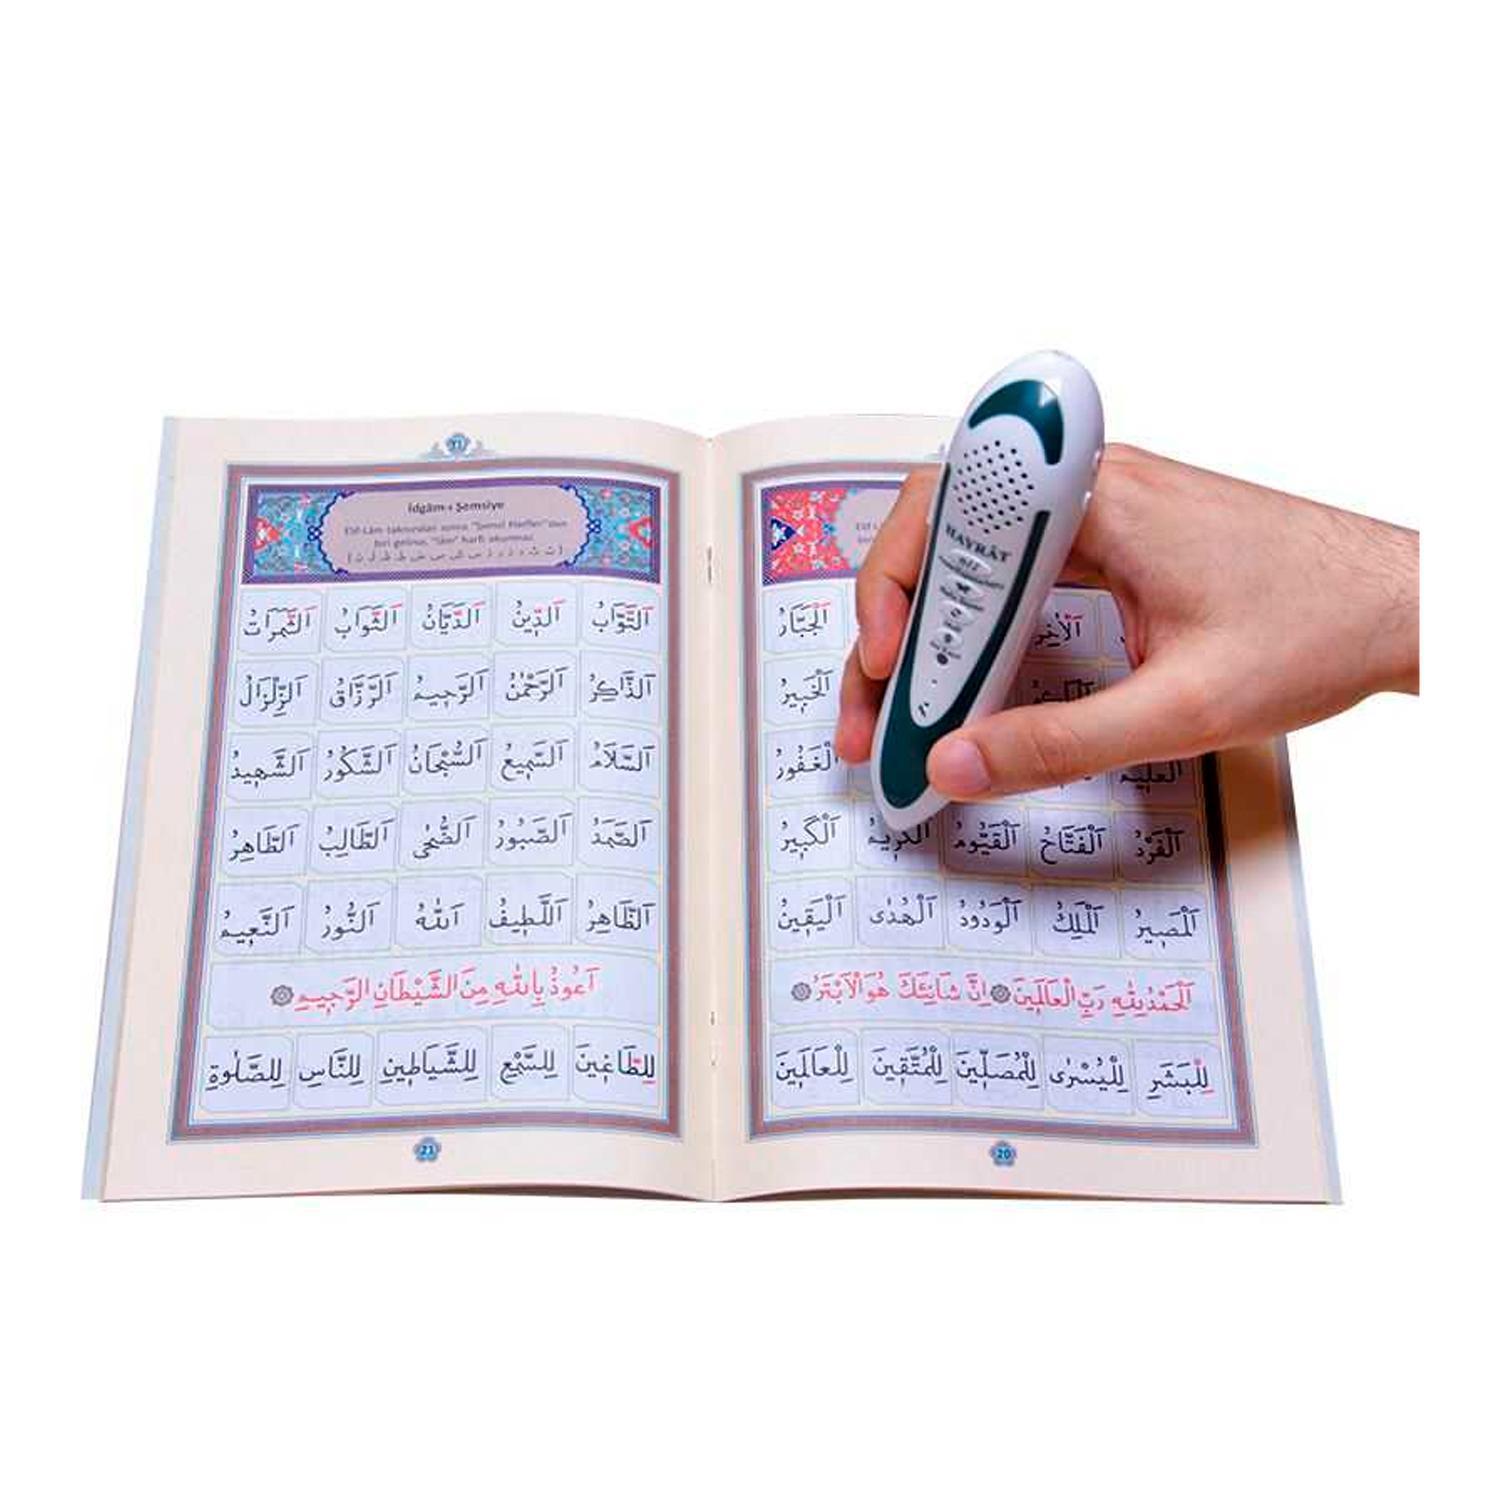 اَلْجَبَّارُ
اَلْاٰخِرُ
اَلْخَبِيرُ
اَلْغَفُورُ
اَلْعَلِيمُ
اَلْفَرْدُ اَلْفَتَّاحُ اَلْقَيُّومُ اَلْكَرِيمُ اَلْكَبِيرُ
اَلْمَصِيرُ اَلْمَلِكُ اَلْوَدُودُ اَلْهُدٰى اَلْيَقِينُ
اَلْحَمْدُ لِلّٰهِ رَبِّ الْعَالَمِينَ ۞ اِنَّ شَانِئَكَ هُوَ الْاَبْتَرُ ۞
لِلْبَشَرِ لِلْيُسْرٰى لِلْمُصَلِّينَ لِلْمُتَّقِينَ لِلْعَالَمِينَ
20
HAYRÂT
٢١
İdgâm-ı Şemsiye
Elif-Lâm takısından sonra "Şemsî Harfler"den
biri gelirse, "lâm" harfi okunmaz.
اَلتَّوَّابُ اَلدِّينُ اَلدَّيَّانُ اَلثَّوَابُ اَلثَّمَرَاتُ
اَلذَّاكِرُ اَلرَّحْمٰنُ اَلرَّحِيمُ اَلرَّزَّاقُ اَلزِّلْزَالُ
اَلسَّلَامُ اَلسَّمِيعُ اَلسُّبْحَانُ اَلشَّكُورُ اَلشَّهِيدُ
اَلصَّمَدُ اَلصَّبُورُ اَلضُّحٰى اَلطَّالِبُ اَلطَّاهِرُ
اَلظَّاهِرُ اَللَّطِيفُ اَللّٰهُ اَلنُّورُ اَلنَّعِيمُ
اَعُوذُ بِاللّٰهِ مِنَ الشَّيْطَانِ الرَّجِيمِ ۞
لِلطَّاغِينَ لِلسَّمْعِ لِلشَّيَاطِينِ لِلنَّاسِ لِلصَّلٰوةِ
21